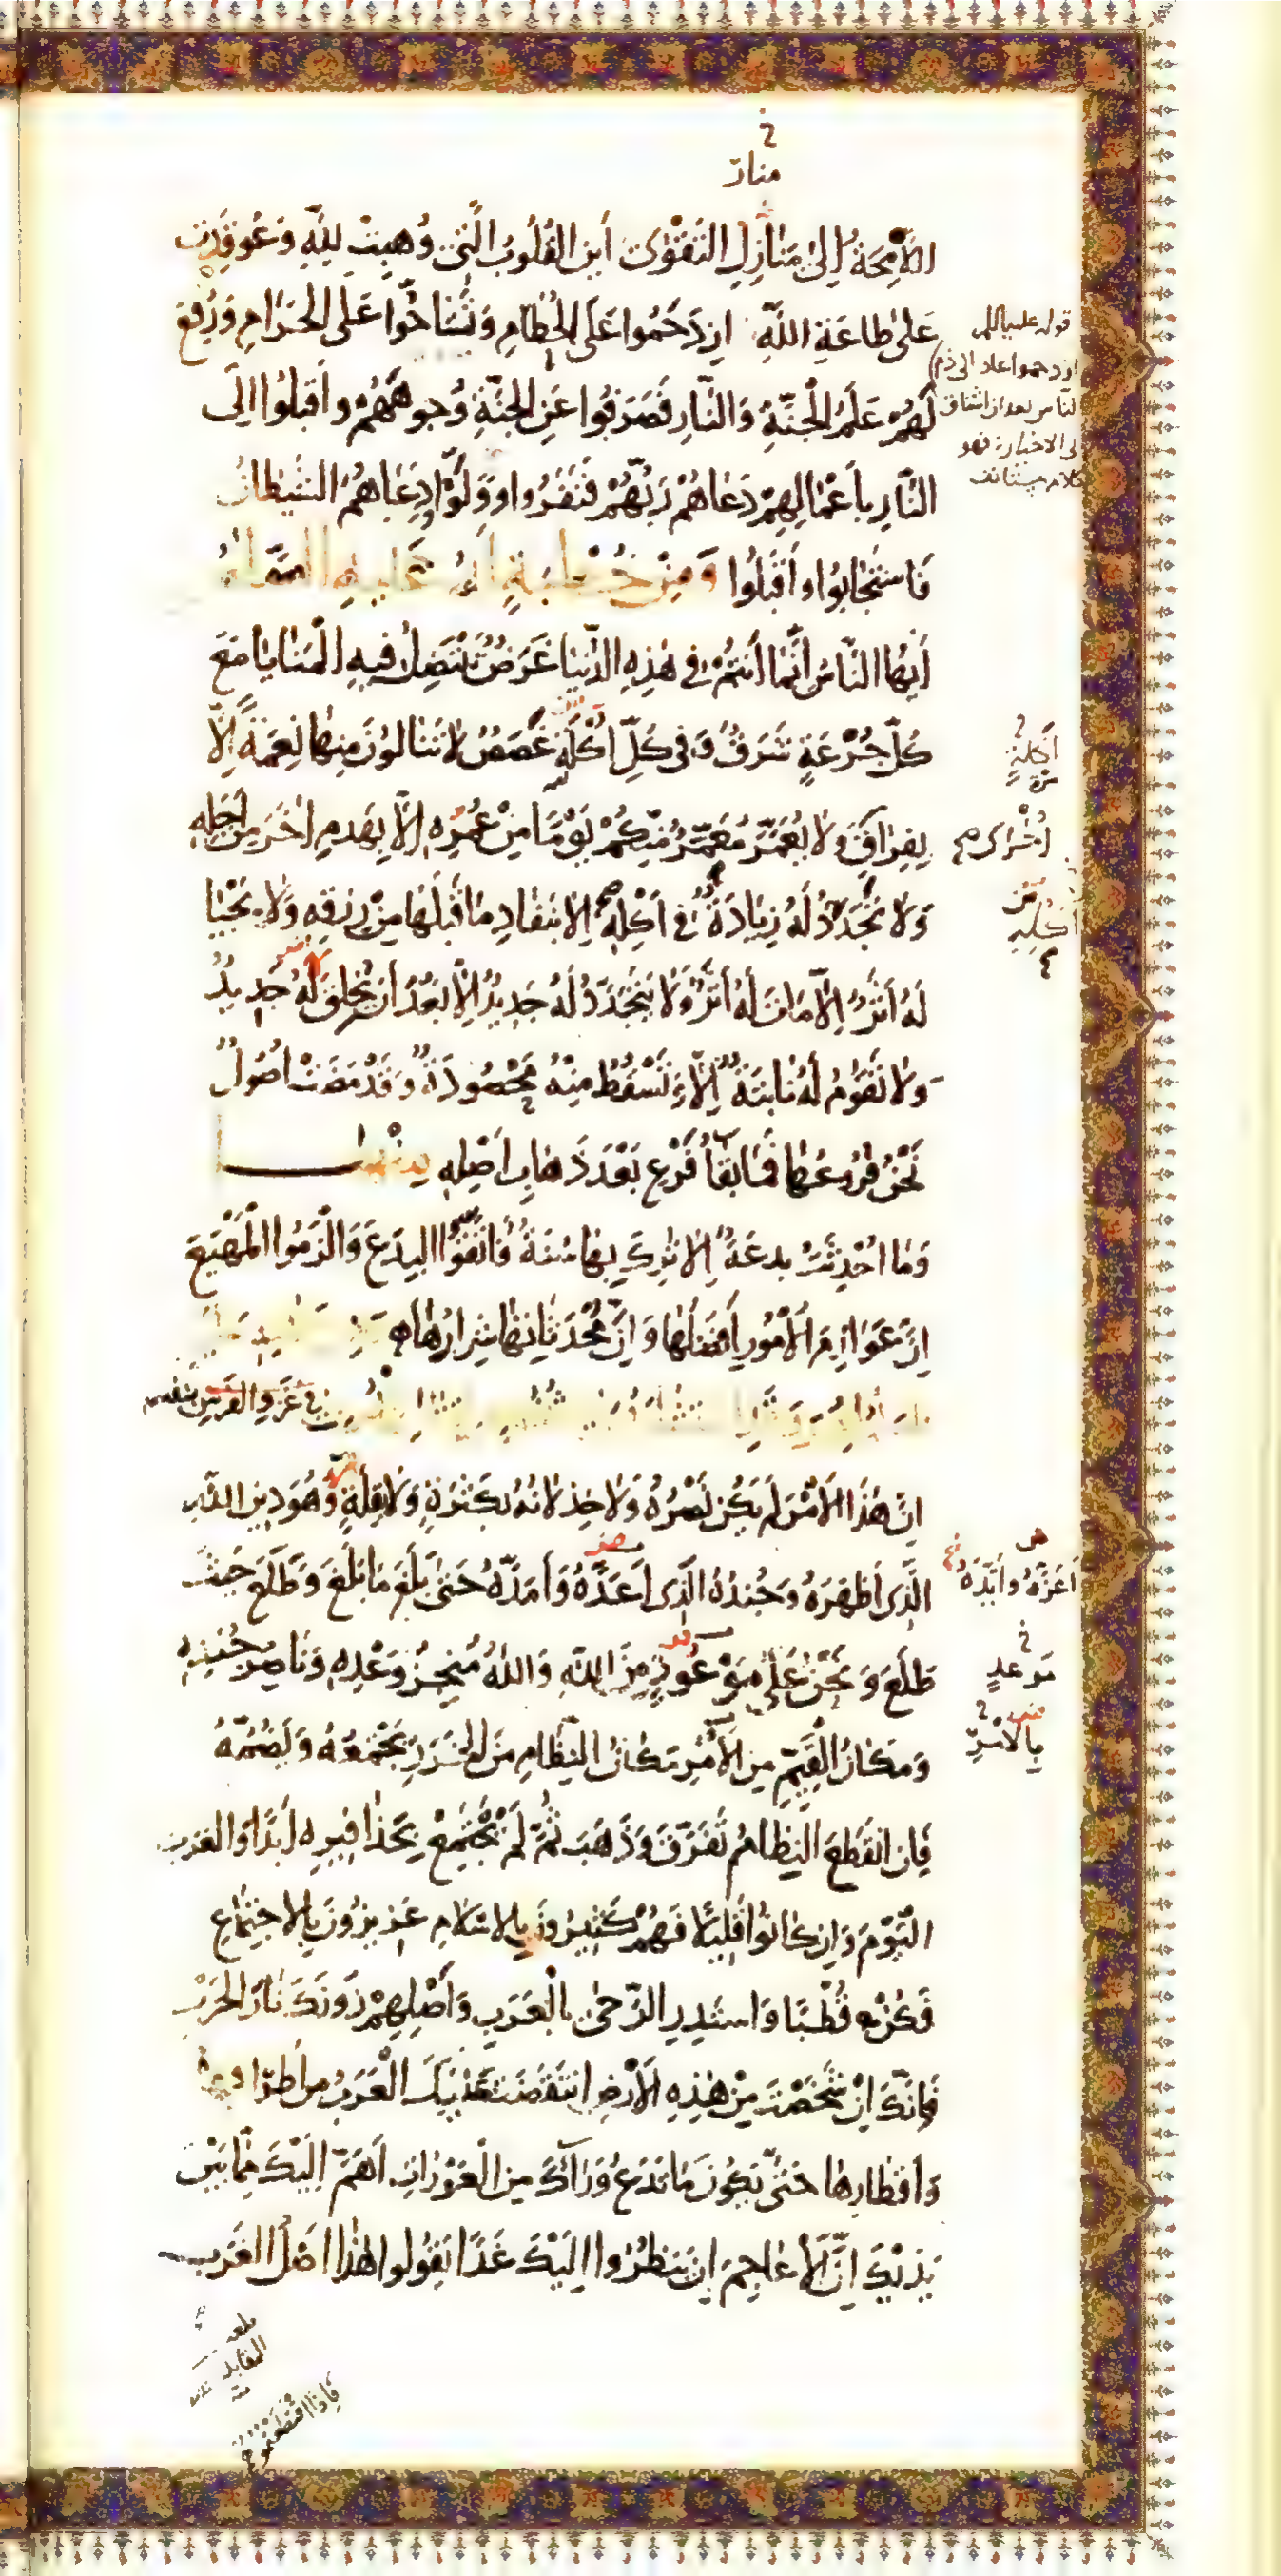 منار
اللَّامِحَةُ إِلَى مَنَازِلِ التَّقْوَى أَيْنَ الْقُلُوبُ الَّتِي وُهِبَتْ لِلَّهِ وَعُوقِدَتْ
عَلَى طَاعَةِ اللَّهِ ازْدَحَمُوا عَلَى الْحُطَامِ وَتَشَاحُّوا عَلَى الْحَرَامِ وَرُفِعَ
لَهُمْ عَلَمُ الْجَنَّةِ وَالنَّارِ فَصَرَفُوا عَنِ الْجَنَّةِ وُجُوهَهُمْ وَأَقْبَلُوا إِلَى
النَّارِ بِأَعْمَالِهِمْ دَعَاهُمْ رَبُّهُمْ فَنَفَرُوا وَوَلَّوْا وَدَعَاهُمُ الشَّيْطَانُ
فَاسْتَجَابُوا وَأَقْبَلُوا وَمِنْ خُطْبَةٍ لَهُ عَلَيْهِ السَّلَامُ
أَيُّهَا النَّاسُ إِنَّمَا أَنْتُمْ فِي هَذِهِ الدُّنْيَا غَرَضٌ تَنْتَضِلُ فِيهِ الْمَنَايَا مَعَ
كُلِّ جُرْعَةٍ شَرَقٌ وَفِي كُلِّ أُكْلَةٍ غَصَصٌ لَا تَنَالُونَ مِنْهَا نِعْمَةً إِلَّا
بِفِرَاقِ وَلَا يُعَمَّرُ مُعَمَّرٌ مِنْكُمْ يَوْمًا مِنْ عُمُرِهِ إِلَّا بِهَدْمِ آخَرَ مِنْ أَجَلِهِ
وَلَا تُجَدَّدُ لَهُ زِيَادَةٌ فِي أَكْلِهِ إِلَّا بِنَفَادِ مَا قَبْلَهَا مِنْ رِزْقِهِ وَلَا يَحْيَا
لَهُ أَثَرٌ إِلَّا مَاتَ لَهُ أَثَرٌ وَلَا يَتَجَدَّدُ لَهُ جَدِيدٌ إِلَّا بَعْدَ أَنْ يَخْلَقَ لَهُ جَدِيدٌ
وَلَا تَقُومُ لَهُ نَابِتَةٌ إِلَّا وَتَسْقُطُ مِنْهُ مَحْصُودَةٌ وَقَدْ مَضَتْ أُصُولٌ
نَحْنُ فُرُوعُهَا فَمَا بَقَاءُ فَرْعٍ بَعْدَ ذَهَابِ أَصْلِهِ مِنْهَا
وَمَا أُحْدِثَتْ بِدْعَةٌ إِلَّا تُرِكَ بِهَا سُنَّةٌ فَاتَّقُوا الْبِدَعَ وَالْزَمُوا الْمَهْيَعَ
إِنَّ عَوَازِمَ الْأُمُورِ أَفْضَلُهَا وَإِنَّ مُحْدَثَاتِهَا شِرَارُهَا
فِي غَزْوِ الْفُرْسِ بِنَفْسِهِ
إِنَّ هَذَا الْأَمْرَ لَمْ يَكُنْ نَصْرُهُ وَلَا خِذْلَانُهُ بِكَثْرَةٍ وَلَا بِقِلَّةٍ وَهُوَ دِينُ اللَّهِ
الَّذِي أَظْهَرَهُ وَجُنْدُهُ الَّذِي أَعَدَّهُ وَأَمَدَّهُ حَتَّى بَلَغَ مَا بَلَغَ وَطَلَعَ حَيْثُ
طَلَعَ وَنَحْنُ عَلَى مَوْعُودٍ مِنَ اللَّهِ وَاللَّهُ مُنْجِزٌ وَعْدَهُ وَنَاصِرٌ جُنْدَهُ
وَمَكَانُ الْقَيِّمِ مِنَ الْأَمْرِ مَكَانُ النِّظَامِ مِنَ الْخَرَزِ يَجْمَعُهُ وَيَضُمُّهُ
فَإِنِ انْقَطَعَ النِّظَامُ تَفَرَّقَ وَذَهَبَ ثُمَّ لَمْ يَجْتَمِعْ بِحَذَافِيرِهِ أَبَدًا وَالْعَرَبُ
الْيَوْمَ وَإِنْ كَانُوا قَلِيلًا فَهُمْ كَثِيرُونَ بِالْإِسْلَامِ عَزِيزُونَ بِالِاجْتِمَاعِ
فَكُنْ قُطْبًا وَاسْتَدِرِ الرَّحَى بِالْعَرَبِ وَأَصْلِهِمْ دُونَكَ نَارَ الْحَرْبِ
فَإِنَّكَ إِنْ شَخَصْتَ مِنْ هَذِهِ الْأَرْضِ انْتَقَضَتْ عَلَيْكَ الْعَرَبُ مِنْ أَطْرَافِهَا
وَأَقْطَارِهَا حَتَّى يَكُونَ مَا تَدَعُ وَرَاءَكَ مِنَ الْعَوْرَاتِ أَهَمَّ إِلَيْكَ مِمَّا بَيْنَ
يَدَيْكَ إِنَّ الْأَعَاجِمَ إِنْ يَنْظُرُوا إِلَيْكَ غَدًا يَقُولُوا هَذَا أَصْلُ الْعَرَبِ
فَإِذَا اقْتَطَعْتُمُوهُ
قوله عليه السلام
ازدحموا عاد الى ذم
الناس بعد ان اشتاق
الى الاخيار فهو
كلام مستأنف
أَكْلَةٍ
أُخْرَى
مِن
أُكُلِهِ
أَعَزَّهُ وَأَيَّدَهُ
مَوْعِدٍ
بِالْأَمْرِ